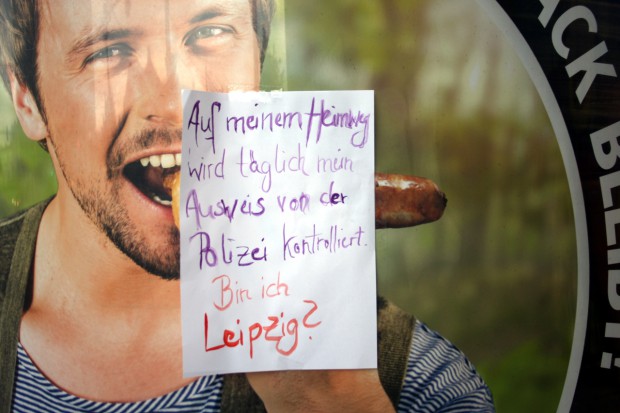 Auf meinem Heimweg
wird täglich mein
Ausweis von der
Polizei kontrolliert.
Bin ich
Leipzig?
ACK BLEIBT!